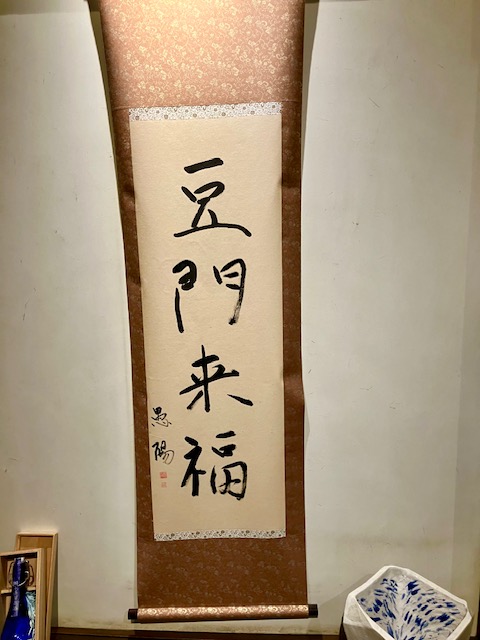 豆門来福
愚陽